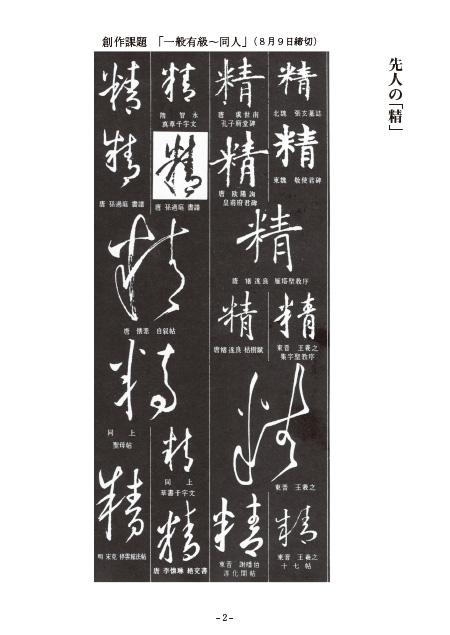 創作課題 「一般有級～同人」(８月９日締切)
先人の「精」
精
北魏 張玄墓誌
精
東魏 敬使君碑
精
唐 虞世南
孔子廟堂碑
精
唐 欧陽詢
皇甫府君碑
精
唐 褚遂良 雁塔聖教序
精
東晋 王羲之
集字聖教序
精
唐褚遂良 枯樹賦
精
東晋 王羲之
精
東晋 王羲之
十七帖
精
東晋 謝璠伯
淳化閣帖
精
隋 智永
真草千字文
精
精
唐 孫過庭 書譜
精
唐 孫過庭 書譜
精
唐 懐素 自叙帖
精
同上
聖母帖
精
同上
草書千字文
精
明 宋克
精
唐 李懐琳 絶交書
-2-